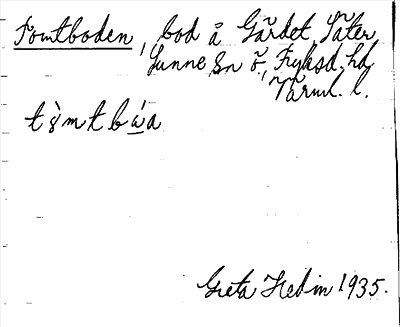 Tomtboden, bod å Gärdet, Säter,
Sunne sn ö., Fryksd. hd,
Värml. l.
Greta Hedin 1935.